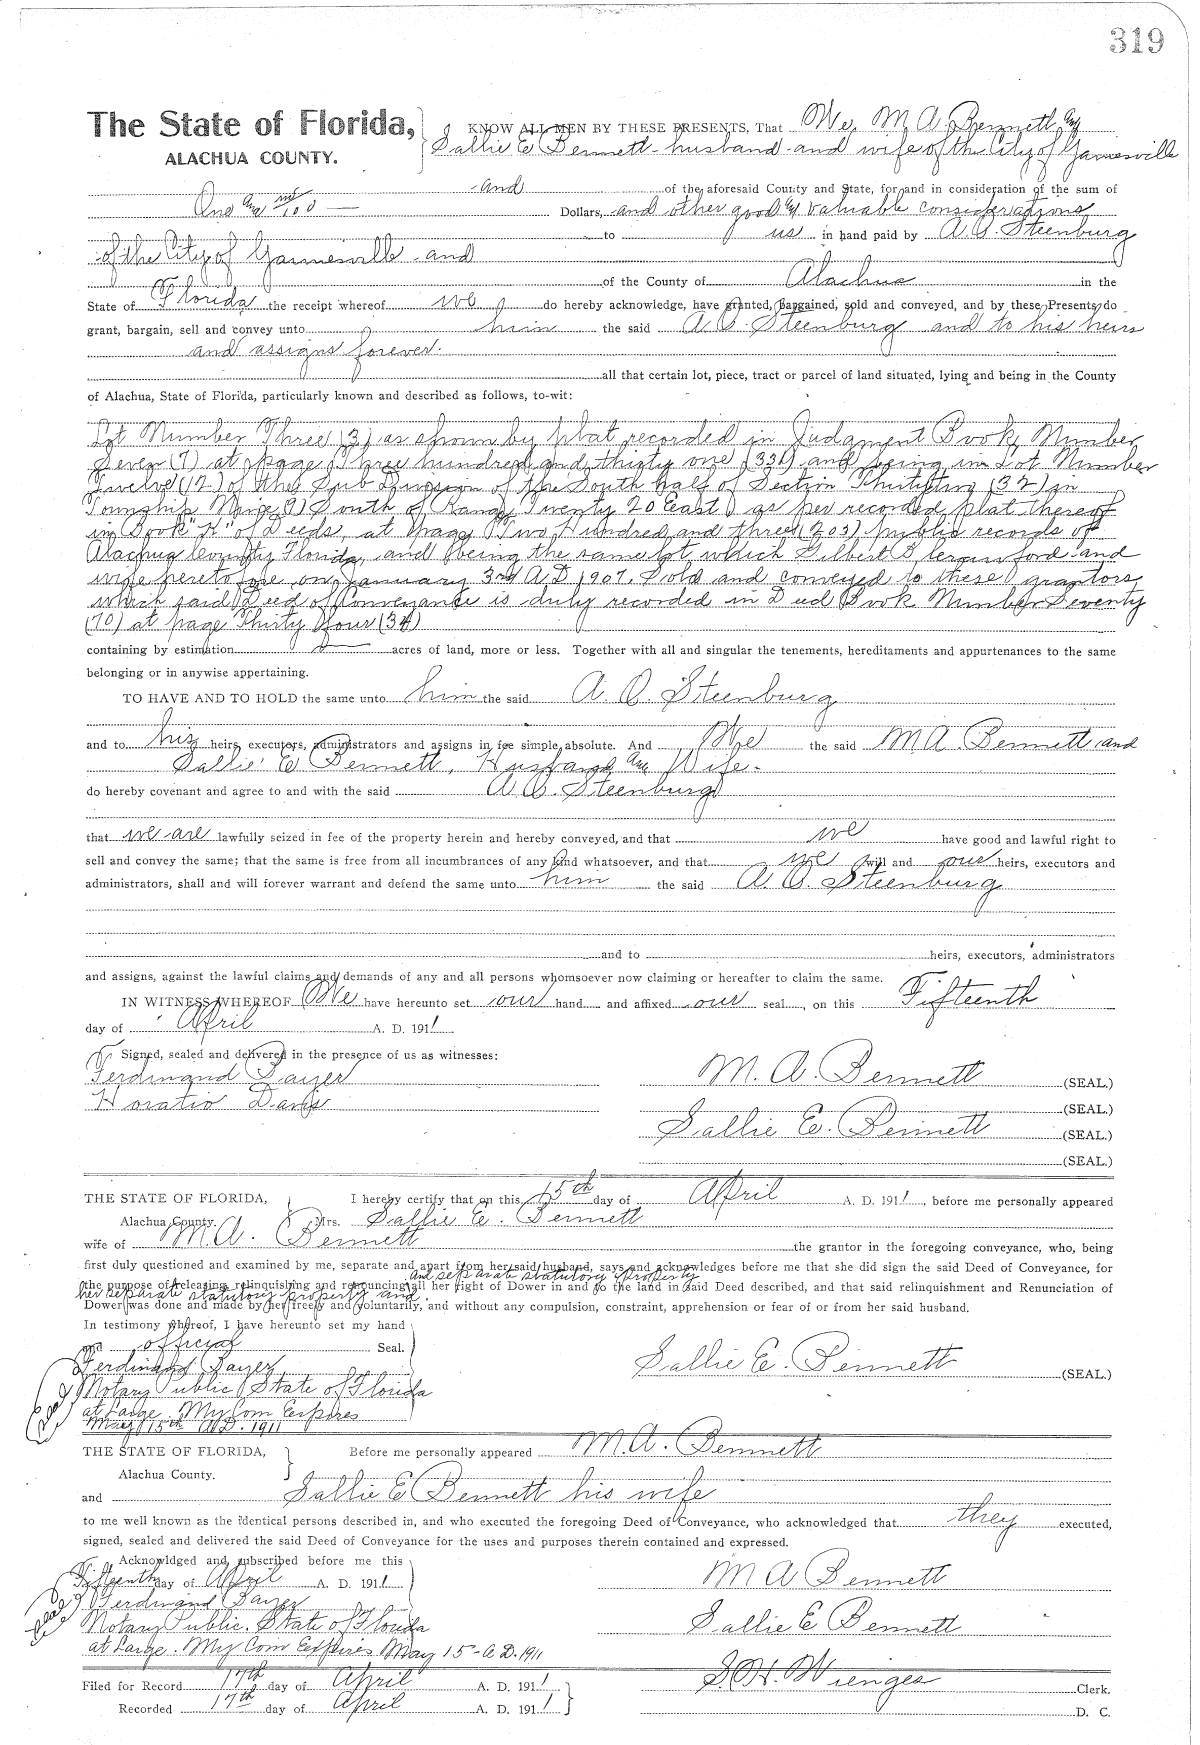 319
The State of Florida, KNOW ALL MEN BY THESE PRESENTS, That We, M. A. Bennett and
ALACHUA COUNTY. Sallie E Bennett - husband - and wife of the City of Gainesville
- and of the aforesaid County and State, for and in consideration of the sum of
One and no/100 — Dollars, and other good & valuable considerations
to us in hand paid by A. O. Steenburg
of the City of Gainesville - and
of the County of Alachua in the
State of Florida the receipt whereof we do hereby acknowledge, have granted, bargained, sold and conveyed, and by these Presents do
grant, bargain, sell and convey unto him the said A. O. Steenburg and to his heirs
and assigns forever.
all that certain lot, piece, tract or parcel of land situated, lying and being in the County
of Alachua, State of Florida, particularly known and described as follows, to-wit:
Lot Number Three (3) as shown by plat recorded in Judgment Book, Number
Seven (7) at page Three hundred and thirty one (331) and being in Lot Number
Twelve (12) of the Sub Division of the South half of Section Thirty two (32) in
Township Nine 9) South of Range Twenty 20 East) as per recorded plat thereof
in Book "K" of Deeds, at page Two Hundred and three (203) public records of
Alachua County Florida, and being the same lot which Gilbert S. Crawford and
wife heretofore on January 3rd A.D 1907. Sold and conveyed to these grantors
which said Deed of Conveyance is duly recorded in Deed Book Number Seventy
(70) at page Thirty Four (34)
containing by estimation — acres of land, more or less. Together with all and singular the tenements, hereditaments and appurtenances to the same
belonging or in anywise appertaining.
TO HAVE AND TO HOLD the same unto him the said A. O. Steenburg
and to his heirs, executors, administrators and assigns in fee simple absolute. And We the said M A Bennett and
Sallie E Bennett, Husband and Wife.
do hereby covenant and agree to and with the said A O. Steenburg
that we are lawfully seized in fee of the property herein and hereby conveyed, and that we have good and lawful right to
sell and convey the same; that the same is free from all incumbrances of any kind whatsoever, and that we will and our heirs, executors and
administrators, shall and will forever warrant and defend the same unto him the said A. O. Steenburg
and to heirs, executors, administrators
and assigns, against the lawful claims and demands of any and all persons whomsoever now claiming or hereafter to claim the same.
IN WITNESS WHEREOF We have hereunto set our hand and affixed our seal, on this Fifteenth
day of April A. D. 1911
Signed, sealed and delivered in the presence of us as witnesses:
Ferdinand Bayer M. A. Bennett (SEAL.)
Horatio Davis (SEAL.)
Sallie E. Bennett (SEAL.)
(SEAL.)
THE STATE OF FLORIDA, I hereby certify that on this 15th day of April A. D. 1911, before me personally appeared
Alachua County. Mrs. Sallie E. Bennett
wife of M. A. Bennett the grantor in the foregoing conveyance, who, being
first duly questioned and examined by me, separate and apart from her said husband, says and acknowledges before me that she did sign the said Deed of Conveyance, for
and separate statutory property
the purpose of releasing, relinquishing and renouncing all her right of Dower in and to the land in said Deed described, and that said relinquishment and Renunciation of
her separate statutory property and
Dower was done and made by her freely and voluntarily, and without any compulsion, constraint, apprehension or fear of or from her said husband.
In testimony whereof, I have hereunto set my hand
and official Seal.
Ferdinand Bayer Sallie E. Bennett (SEAL.)
Notary Public State of Florida
at Large. My Com Expires
May 15th A.D. 1911
THE STATE OF FLORIDA, Before me personally appeared M. A. Bennett
Alachua County.
and Sallie E Bennett his wife
to me well known as the identical persons described in, and who executed the foregoing Deed of Conveyance, who acknowledged that they executed,
signed, sealed and delivered the said Deed of Conveyance for the uses and purposes therein contained and expressed.
Acknowldged and subscribed before me this
Fifteenth day of April A. D. 1911 M A Bennett
Ferdinand Bayer
Notary Public. State of Florida Sallie E Bennett
at Large. My Com Expires May 15 - A.D. 1911
Filed for Record 17th day of April A. D. 1911 S. H. Wienges Clerk.
Recorded 17th day of April A. D. 1911 D. C.